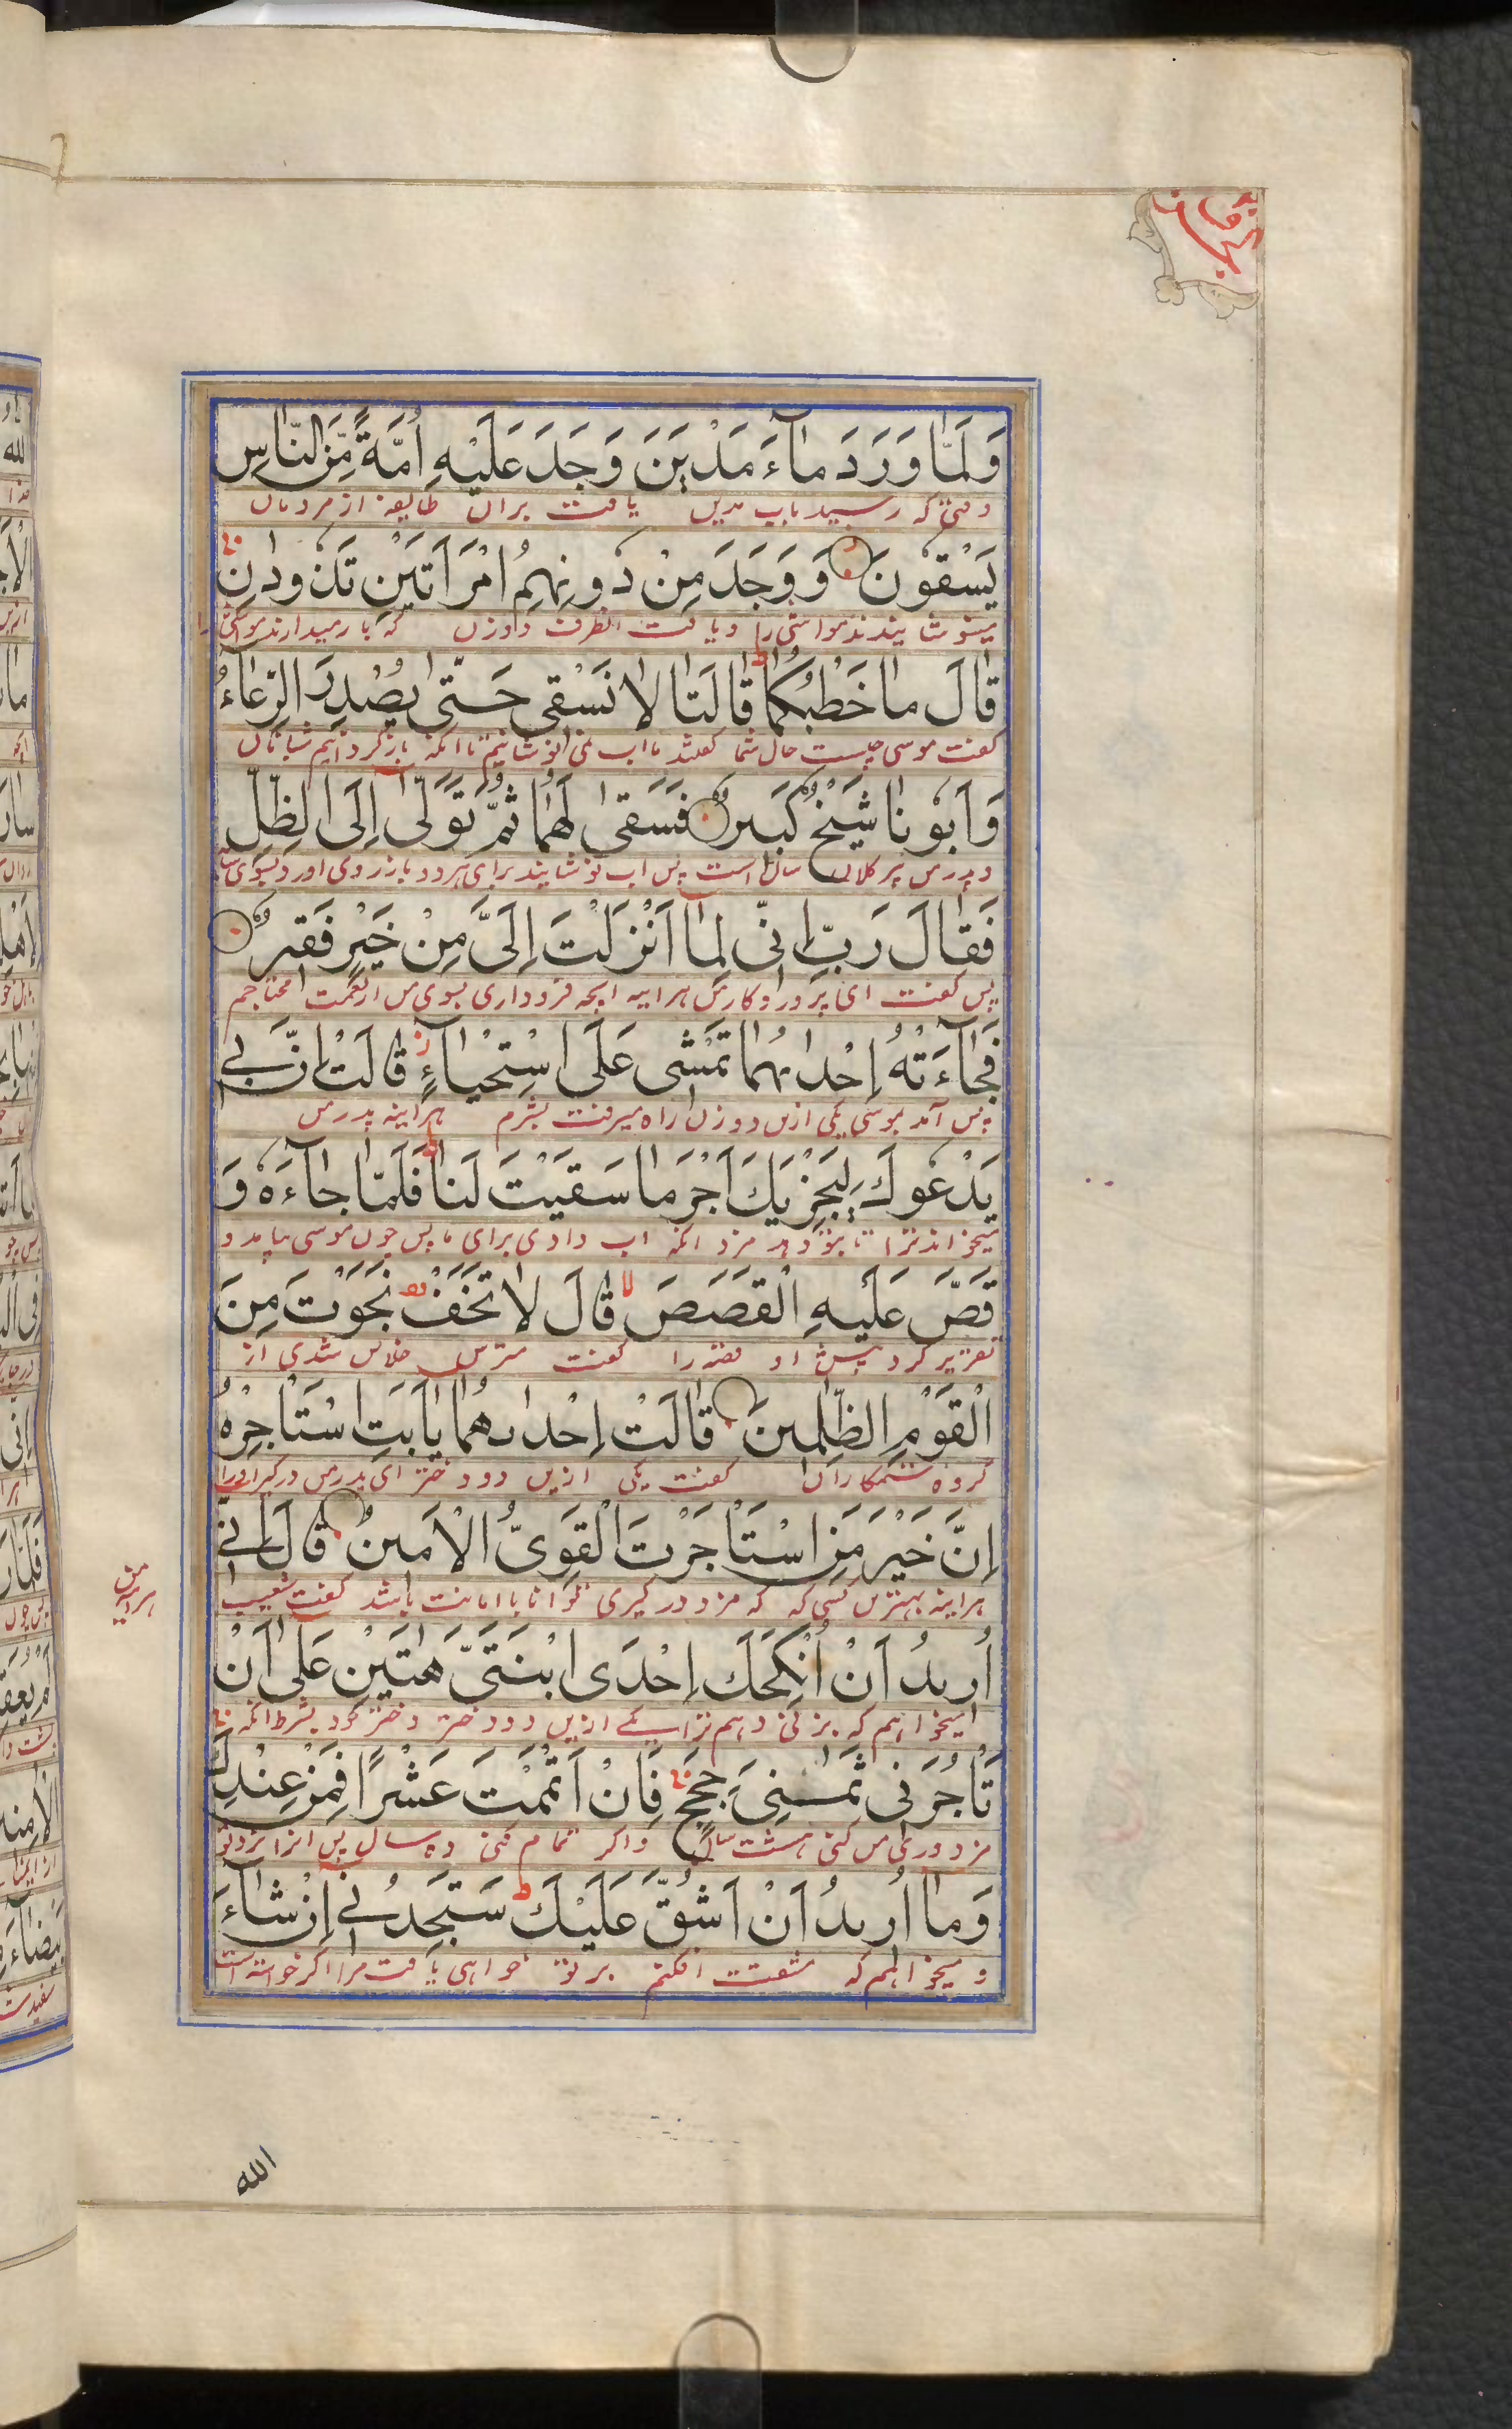 وَلَمَّا وَرَدَ مَآءَ مَدْيَنَ وَجَدَ عَلَيْهِ اُمَّةً مِّنَ النَّاسِ
وقتی که رسید باب مدین یافت بران طایفه از مردمان
يَسْقُونَ وَ وَجَدَ مِنْ دُونِهِمُ امْرَاَتَيْنِ تَذُودٰنِ
مینوشانیدند مواشی را و یافت انطرف دو زن که باز میدارند مواشی را
قَالَ مَا خَطْبُكُمَا قَالَتَا لَا نَسْقِى حَتّٰى يُصْدِرَ الرِّعَآءُ
گفت موسی چیست حال شما گفتند ما اب نمی نوشانیم تا انکه بازگردانیم شبانان
وَاَبُونَا شَيْخٌ كَبِيرٌ فَسَقٰى لَهُمَا ثُمَّ تَوَلّٰى اِلَى الظِّلِّ
و پدر من پیر کلان سال است پس اب نوشانید برای هر دو باز روی اورد بسوی سایه
فَقَالَ رَبِّ اِنِّى لِمَا اَنْزَلْتَ اِلَىَّ مِنْ خَيْرٍ فَقِيرٌ
پس گفت ای پروردگار من هراینه انچه فرود اری بسوی من از نعمت محتاجم
فَجَآءَتْهُ اِحْدٰىهُمَا تَمْشِى عَلَى اسْتِحْيَآءٍ قَالَتْ اِنَّ اَبِى
پس آمد بموسی یکی ازین دو زن راه میرفت بشرم هراینه پدر من
يَدْعُوكَ لِيَجْزِيَكَ اَجْرَ مَا سَقَيْتَ لَنَا فَلَمَّا جَآءَهُ وَ
میخواند ترا تا بتو دهد مزد انکه اب دادی برای ما پس چون موسی بیامد و
قَصَّ عَلَيْهِ الْقَصَصَ قَالَ لَا تَخَفْ نَجَوْتَ مِنَ
تقریر کرد پیش او قصه را گفت مترس خلاص شدی از
الْقَوْمِ الظّٰلِمِينَ قَالَتْ اِحْدٰىهُمَا يٰاَبَتِ اسْتَاْجِرْهُ
گروه ستمکاران گفت یکی ازین دو دختر ای پدر من درگیر او را
اِنَّ خَيْرَ مَنِ اسْتَاْجَرْتَ الْقَوِىُّ الْاَمِينُ قَالَ اِنِّى
هراینه بهترین کسی که که مزدور گیری توانا با امانت باشد گفت شعیب
هراینه من
اُرِيدُ اَنْ اُنْكِحَكَ اِحْدَى ابْنَتَىَّ هٰتَيْنِ عَلٰى اَنْ
میخواهم که بزنی دهم ترا یکی ازین دو دختر دختر خود بشرط انکه
تَاْجُرَنِى ثَمٰنِىَ حِجَجٍ فَاِنْ اَتْمَمْتَ عَشْرًا فَمِنْ عِنْدِكَ
مزدوری من کنی هشت سال و اگر تمام کنی ده سال پس ان از نزد تو
وَمَا اُرِيدُ اَنْ اَشُقَّ عَلَيْكَ سَتَجِدُنِى اِنْ شَآءَ
و میخواهم که مشقت افکنم بر تو خواهی یافت مرا اگر خواسته است
الله